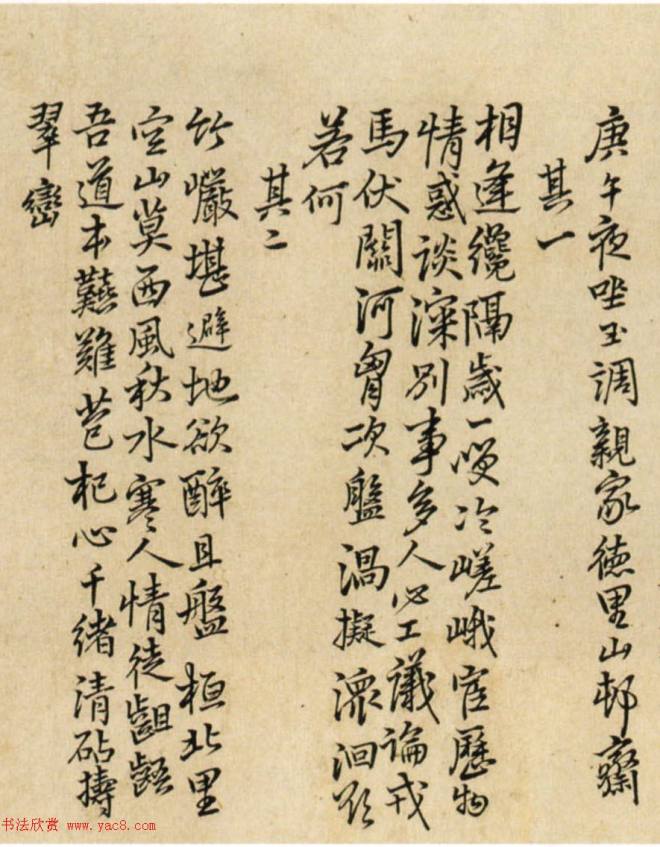 庚午夜坐玉調親家徳里山邨齋
其一
相逢纔隔歲一冷嵯峨宦歷物
情惑談深別事多人心工議論戎
馬伏關河胷次盤渦擬洄欲
若何
其二
竹巖堪避地欲醉且盤桓北里
空山莫西風秋水寒人情徒齟齬
吾道本艱難苞杞心千緒清砧擣
翠巒
书法欣赏 www.yac8.com